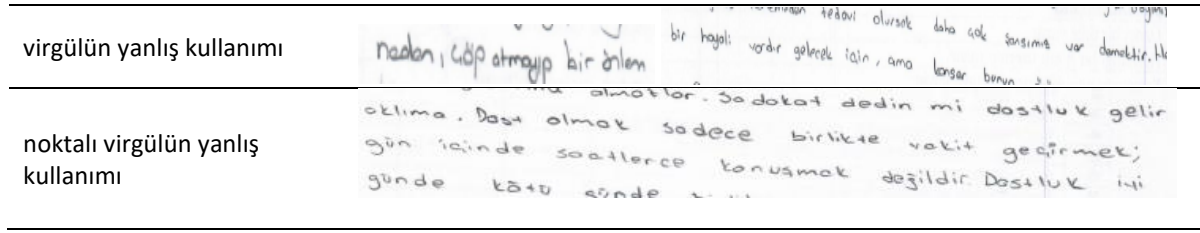 virgülün yanlış kullanımı
neden, çöp atmayıp bir önlem
tedavi olursak daha çok şansımız var demektir.
bir hayali vardır gelecek için, ama kanser bunun
noktalı virgülün yanlış
kullanımı
almazlar. Sadakat dedin mi dostluk gelir
aklıma. Dost olmak sadece birlikte vakit geçirmek;
gün içinde saatlerce konuşmak değildir. Dostluk iyi
günde kötü günde